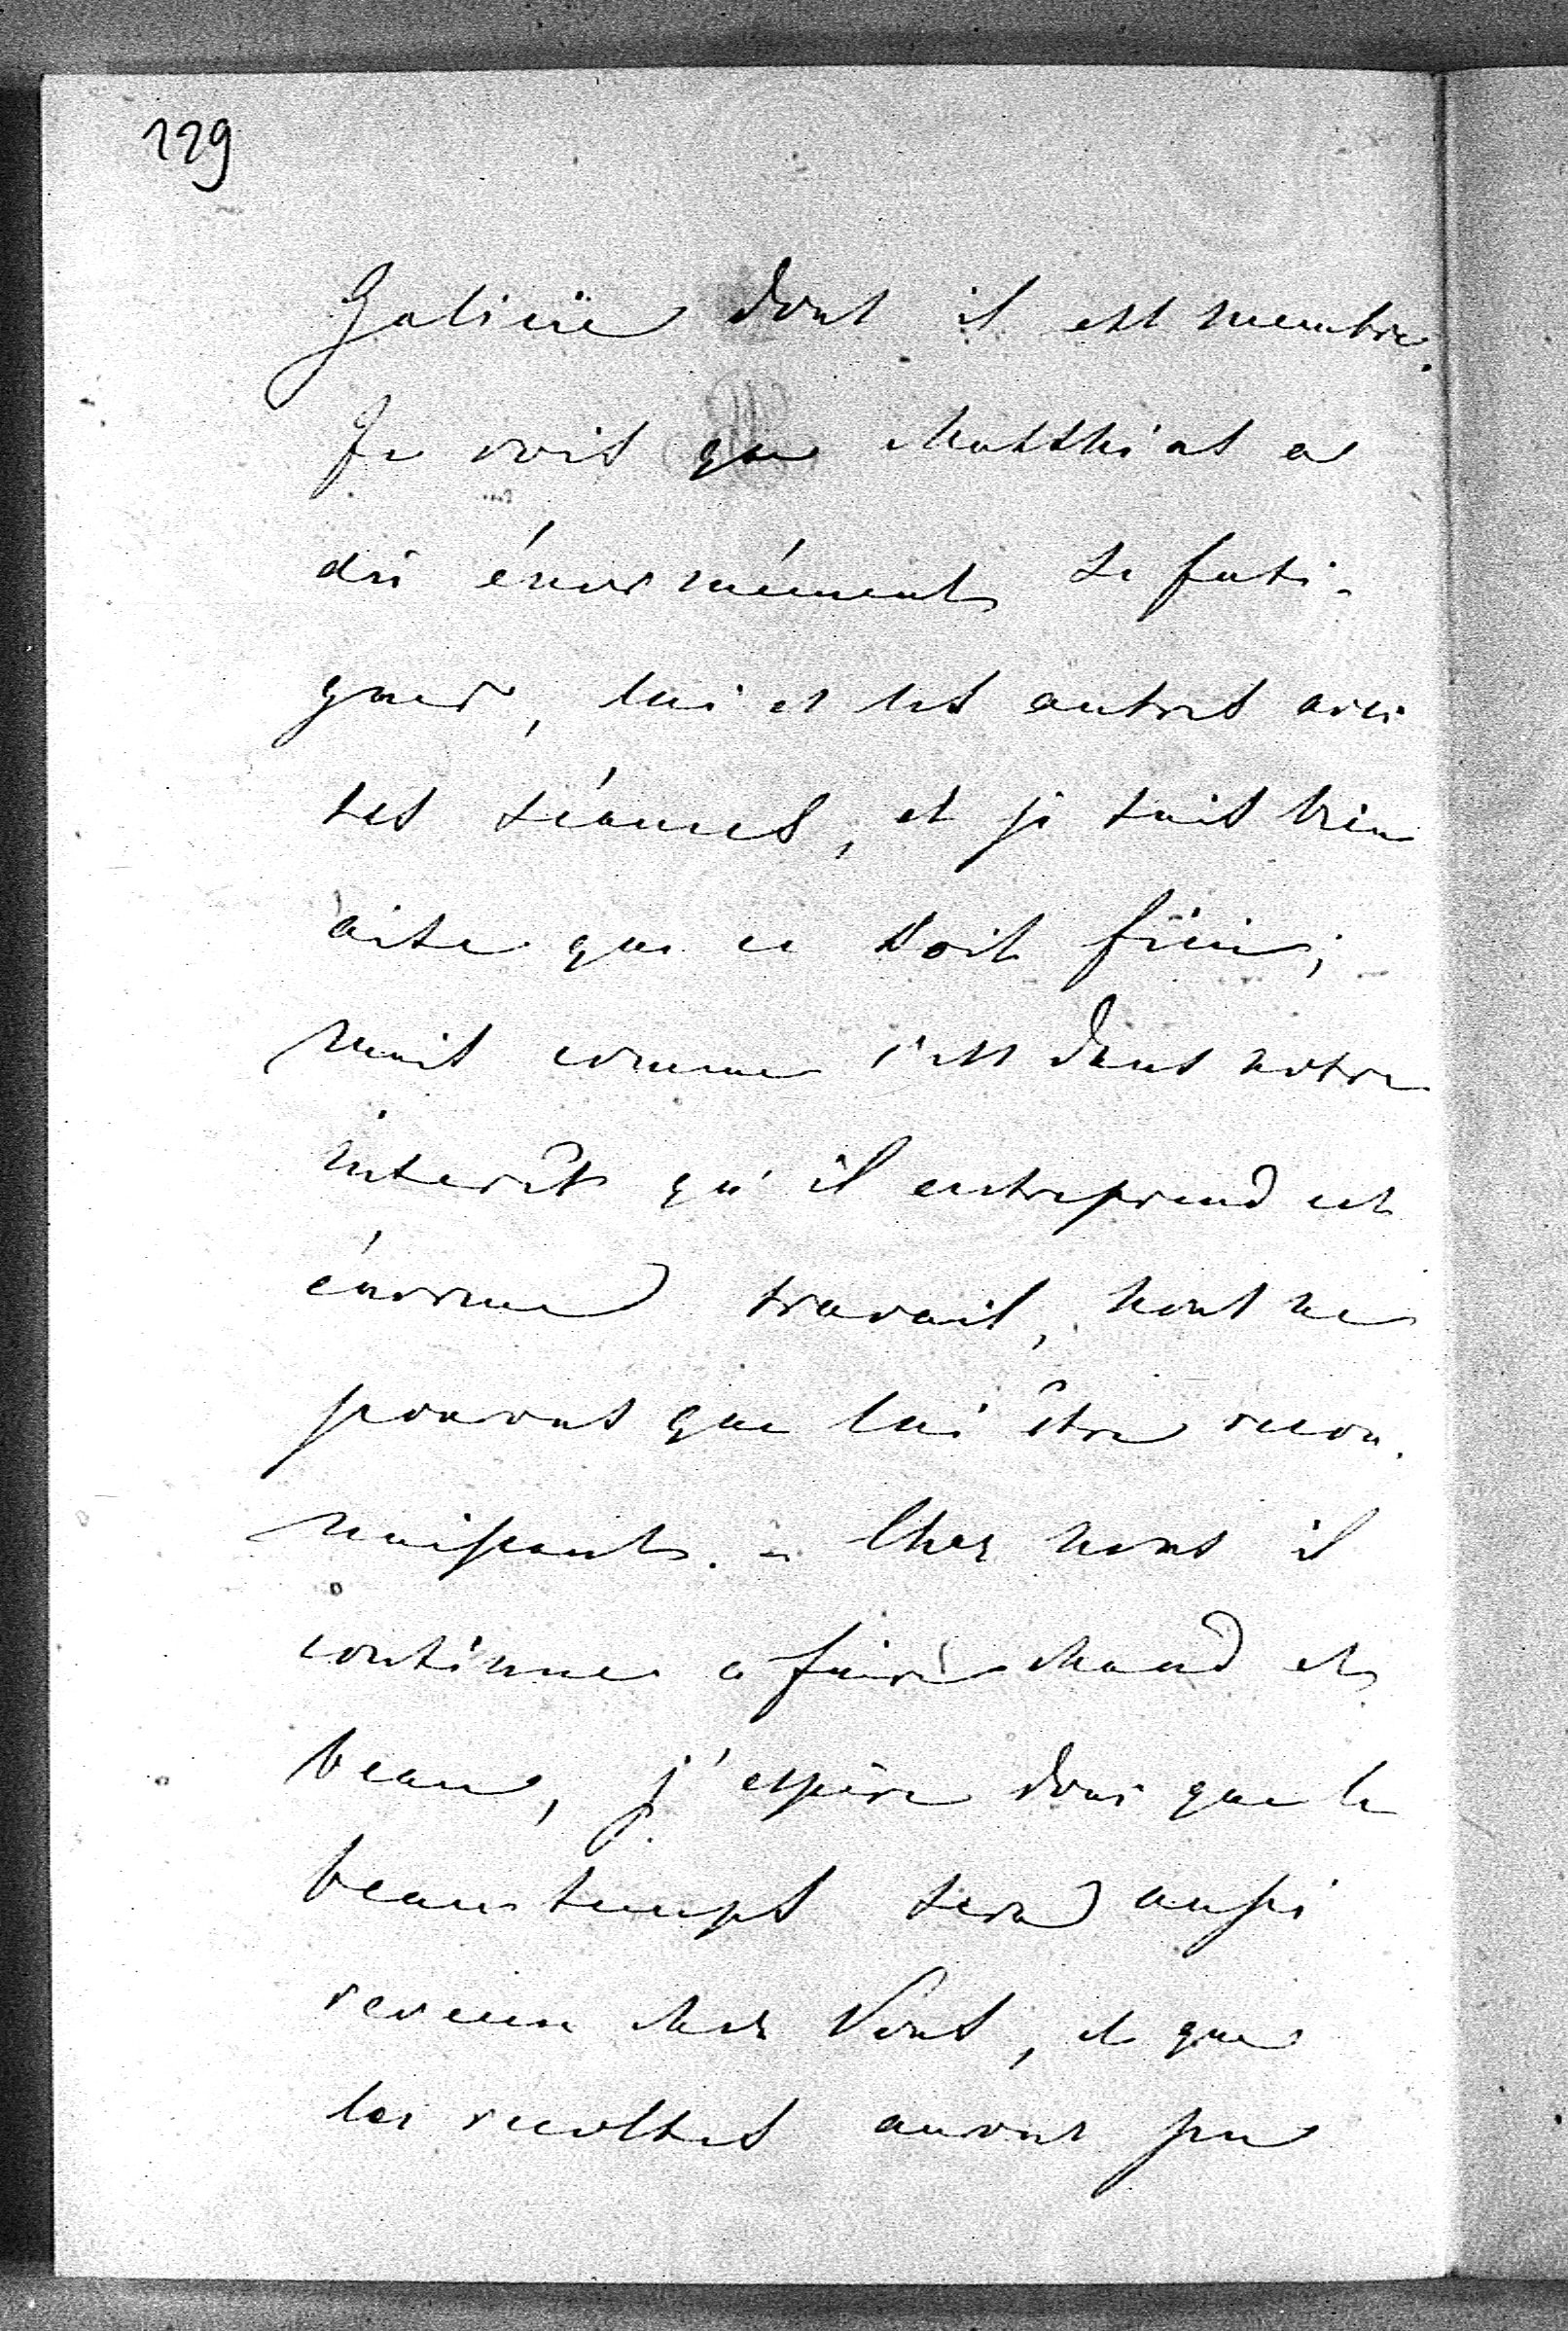 129
Galicïe dont il est membre.
Je vois que Matthias a
dû énormément se fati-
guer, lui et les autres avec
ses séances, et je suis bien
aise que ce soit fini;
mais comme c'est dans notre
interêt qu'il entreprend cet
énorme travail, nous ne
pouvons que lui être recon-
naissants. - Chez nous il
continue a faire chaud et
beau, j'espère donc que le
beau temps sera aussi
revenu chez Vous, et que
les recoltes auront pu